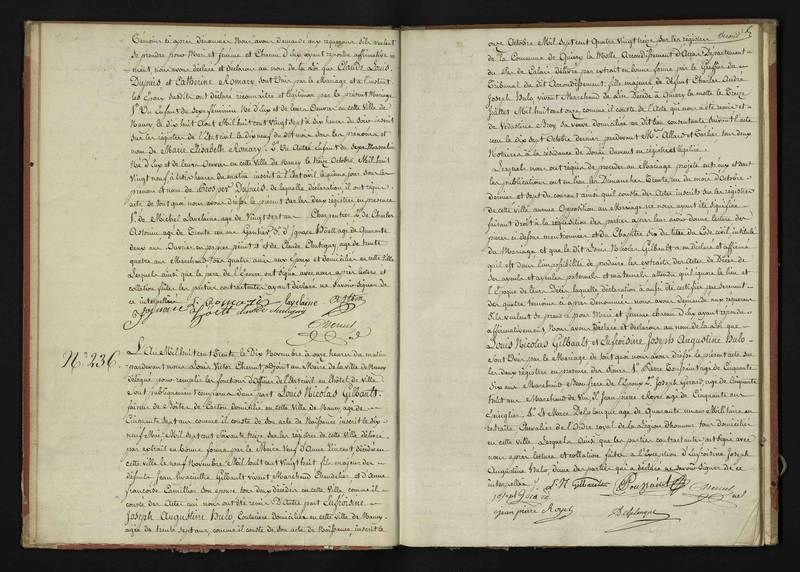 témoins ci après dénommés Nous avons demandé aux requérans s'ils veulent
se prendre pour Mari et femme et Chacun d'eux ayant répondu affirmative-
-ment, nous avons déclaré et déclarons au nom de la Loi que Claude Louis
Dupuis et Catherine Romary sont Unis par le Mariage et à l'instant
les Epoux susdits ont déclaré reconnaître et légitimer par le présent Mariage
1º Un Enfant du Sexe féminin Né d'eux et de leurs Oeuvres en cette Ville de
Nancy le dix huit Aout Mil huit cent Vingt sept à dix heures du Soir inscrit
sur les registres de l'Etat civil le dix neuf du dit mois sous les prénoms et
nom de Marie Elisabeth Romary. 2º Un Autre Enfant du Sexe Masculin
Né d'eux et de leurs Oeuvres en cette Ville de Nancy le treize Octobre Mil huit
Vingt neuf à heures du matin inscrit à l'Etat civil le même jour sous les
prénom et nom de Prosper Dupuis, de laquelle déclaration il ont requis
acte de tout quoi nous avons dressé le présent sur les deux registres en présence
1º de Michel Lavelaine agé de Vingt sept ans Charpentier 2º de Charles
Antoine agé de Trente ans Gantier 3º d'Ignace Hoëtt agé de Quarante
deux ans Ouvrier en papiers peints et 4º de Claude agé de trente
quatre ans Marchand tous quatre amis aux Epoux et domiciliés en cette Ville
Lesquels ainsi que le père de l'Epouse ont signé avec nous après lecture et
collation faites les parties contractantes ayant déclaré ne Savoir signer de
ce interpellées
Lavelaine
Chenut

Nº 236.
L'An Mil huit cent Trente, le Dix Novembre à onze heures du matin
pardevant nous Louis Victor Chenut, adjoint au Maire de la ville de Nancy
délégué pour remplir les fonctions d'Officier de l'Etat civil en l'hôtel de Ville
sont publiquement comparus d'une part Louis Nicolas Gilbault,
faiseur de Boëtes de Carton domicilié en cette Ville de Nancy agé de
Cinquante Sept ans comme il conste de son acte de Naissance inscrit le dix
neuf Mai Mil Sept cent Soixante treize sur les registres de cette Ville délivré
par extrait en bonne forme par le Maire Veuf d'Anne Vincent décédée en
cette ville le neuf Novembre Mil huit cent Vingt huit fils majeur des
défunts Jean hyacinthe Gilbault vivant Marchand Chandelier et d'Anne
françoise Camillier son épouse tous deux décédés en cette Ville comme il
conste des Actes qui nous ont été remis D'Autre part Eufroisine
Joseph Augustine Hulo, Couturière domiciliée en cette ville de Nancy
agée de trente sept ans, comme il conste de son acte de Naissance inscrit le

onze Octobre Mil Sept cent Quatre Vingt treize sur les registres
de la Commune de Quiery la Motte Arrondissement d'Arras Département
du Pas de Calais délivré par extrait en bonne forme par le Greffier du
Tribunal du dit Arrondissement, fille majeure de défunt Charles André
Joseph Hulo vivant Marchand de décédé à Quiery la motte le treize
Juillet Mil huit cent onze comme il conste de l'acte qui nous a été remis et
de Vedastine Broy sa veuve domiciliée au dit lieu consentante suivant l'acte
reçu le dix sept Octobre dernier pardevant Mes Allard et tous deux
Notaires à la résidence de Douai dument enregistré et légalisé.
Lesquels nous ont requis de procéder au Mariage projeté entr'eux et dont
les publications ont eu lieu les Dimanches Trente un du mois d'Octobre
dernier et sept du courant ainsi qu'il conste des Actes inscrits sur les registres
de cette ville aucune Opposition au Mariage ne nous ayant été signifiée
faisant droit à la réquisition des parties après leur avoir donné lecture des
pièces ci dessus mentionnées et du Chapitre six du titre du Code civil intitulé
du Mariage et que le dit Louis Nicolas Gilbault a eu déclaré et affirmé
qu'il est dans l'impossibilité de produire les extraits des Actes de Décès de
ses ayeuls et ayeules paternels et maternels attendu qu'il ignore le lieu et
l'Epoque de leurs Décès laquelle déclaration a aussi été certifiée par serment
des quatre témoins ci après dénommés nous avons demandé aux requérans
S'ils veulent se prendre pour Mari et femme chacun d'eux ayant répondu
affirmativement Nous avons Déclaré et déclarons au nom de la Loi que
Louis Nicolas Gilbault et Eufroisine Joseph Augustine Hulo
sont Unis par le Mariage de tout quoi nous avons dressé le présent acte sur
les deux registres en présence des Sieurs 1º Pierre agé de Cinquante
Six ans Marchand Neveu de l'Epoux 2º Joseph Gérard, agé de Cinquante
huit ans Marchand de Vin 3º Jean pierre Royel agé de Cinquante ans
Epinglier 4º et Marc Delalongue agé de Quarante ans Militaire en
retraite Chevalier de l'Ordre royal de la Légion d'honneur tous domiciliés
en cette ville. Lesquels Ainsi que les parties contractantes ont signé avec
nous après lecture et collation faites à l'Exception d'Eufroisine Joseph
Augustine Hulo, l'une des parties qui a déclaré ne Savoir signer de ce
interpellée
L. N. Gilbault
Chenut
joseph gerard
jean pierre Royel
Delalongue